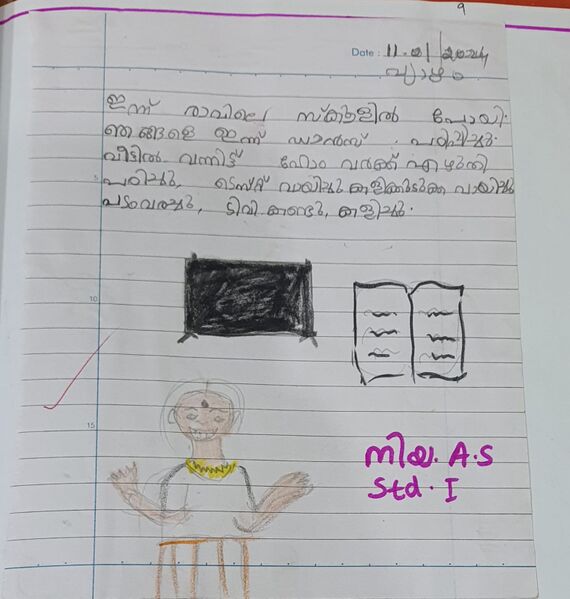 9
Date : 11-01-2024
വ്യാഴം
ഇന്ന് രാവിലെ സ്കൂളിൽ പോയി.
ഞങ്ങളെ ഇന്ന് ഡാൻസ് പഠിപ്പിച്ചു.
വീട്ടിൽ വന്നിട്ട് ഹോം വർക്ക് എഴുതി
5
പഠിച്ചു, ടെസ്റ്റ് വായിച്ചു കളിക്കുടുക്ക വായിച്ചു
പടംവരച്ചു, ടിവി കണ്ടു, കളിച്ചു.
10
15
നിയ. A.S
Std. I